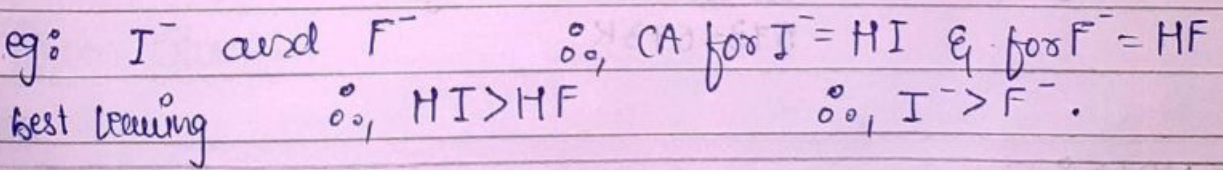 eg: I⁻ and F⁻ ∴, CA for I⁻ = HI & for F⁻ = HF
best leaving ∴, HI > HF ∴, I⁻ > F⁻.